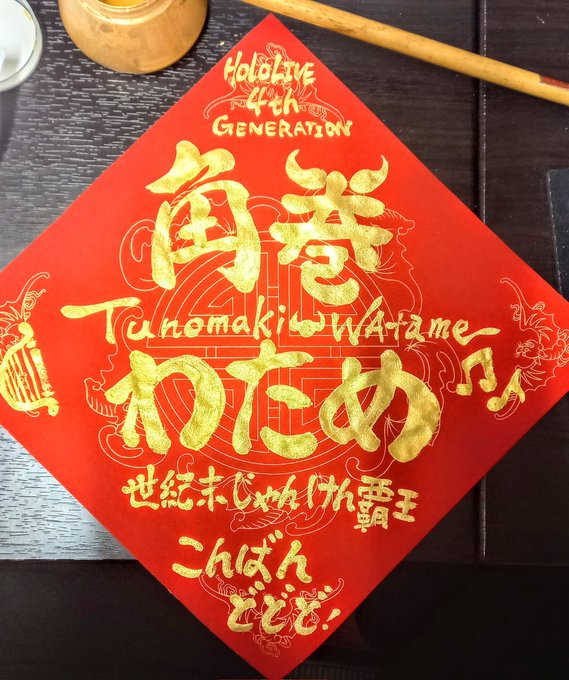 HoloLIVE
4th
GENERATION
角巻
TunomakiωWAtame
わため
世紀末じゃんけん覇王
こんばん
どどど!